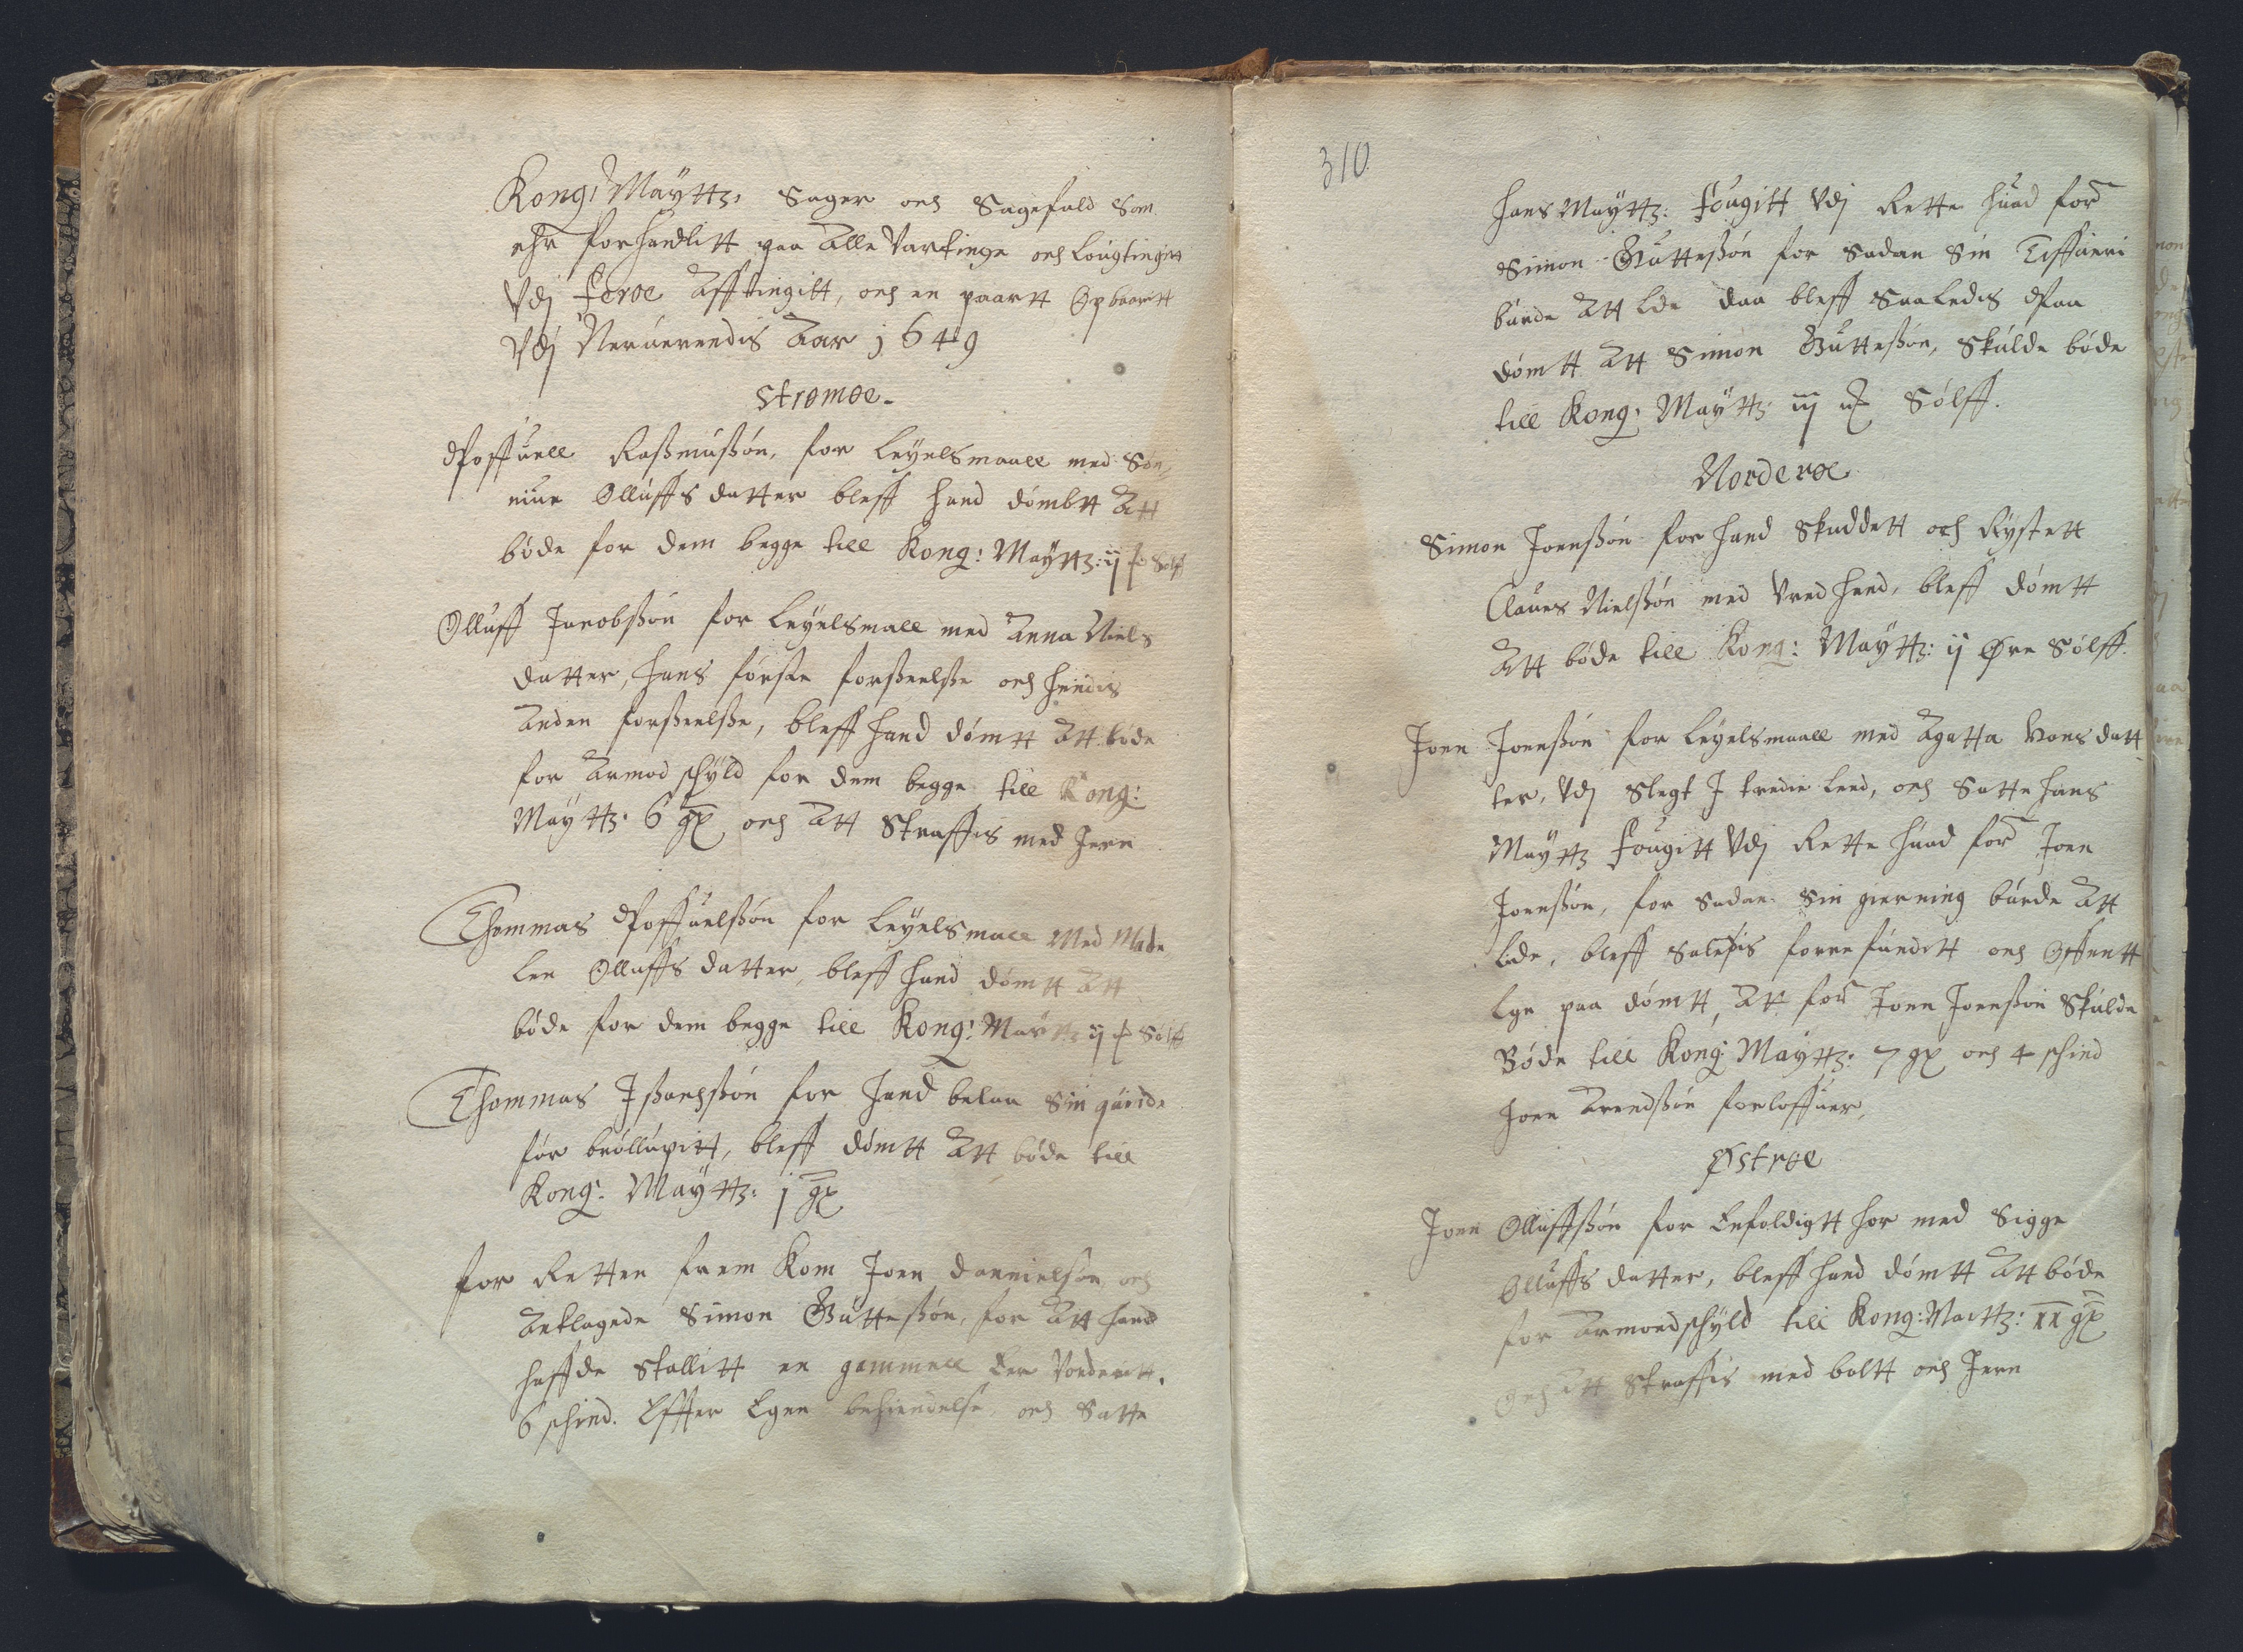 Kong: Maÿttz: Sager och Sagefald Som
ehr forhandlitt paa Alle Vartinge och Lougtingit
Vdj feroe Afftingitt, och en paartt Opbaaritt
Vdj Neruerendis Aar 1649
Strømøe.
Poffuell Raßmußøn, for Leyelsmaall med Søn-
niue Olluffs datter bleff hand dømbtt Att
bøde for dem begge till Kong: Maÿttz: ij Sølff
Olluff Jacobßøn for Leyelsmall med Anna Niels
datter, hans første forßeelße och hindis
Anden forßeelße, bleff hand dømtt Att bøde
for Armod schyld for dem begge till Kong:
Maÿttz: 6 gℓ och Att Straffis med Jern
Thommas Poffuelßøn for Leyelsmall Med Made
len Olluffs datter, bleff hand dømtt Att
bøde for dem begge till Kong: Maÿttz ij Sølff
Thommas Jßachßøn for hand belaa Sin quinde
før brøllupitt, bleff dømtt Att bøde till
Kong: Maÿttz: j gℓ
for Retten frem Kom Joen Dannielsøn och
Anklagede Simon Gutteßøn, for Att hand
haffde Stallitt en gammell Vorderitt.
6 schind. Effter Egen bekiendelse och Satte
310
hans Maÿttz: fougitt Vdj Rette huad for
Simon Gutteßøn for Sadan Sin Tiffueri
burde Att Lde daa bleff Saaledis Paa
dømtt Att Simon Gutteßøn, Skulde bøde
till Kong: Maÿttz iij Sølff.
Norderøe
Simon Joenßøn for hand Skuddett och Rystett
Claues Nielßøn med Vred hand, bleff dømtt
Att bøde till Kong: Maÿttz: ij Øre Sølff.
Joen Joenßøn for Leyelsmaall med Agatta Hans datt
ter, Vdj Slegt J tredie Leed, och Satte hans
Maÿttz fougitt Vdj Rette huad for Joen
Joenßøn, for Sadan Sin gierning burde Att
Lide, bleff forrefundit och
Lge paa dømtt, Att for Joen Joenßøn Skulde
Bøde till Kong Maÿttz: 7 gℓ och 4 schind
Joen Arendßøn forloffuer,
Østrøe
Joen Olluffßøn for Enfoldigtt hor med Sigge
Olluffs datter, bleff hand dømtt Att bøde
for Armoedschyld till Kong: Maittz: xx gℓ
Och Att Straffis med boltt och Jern